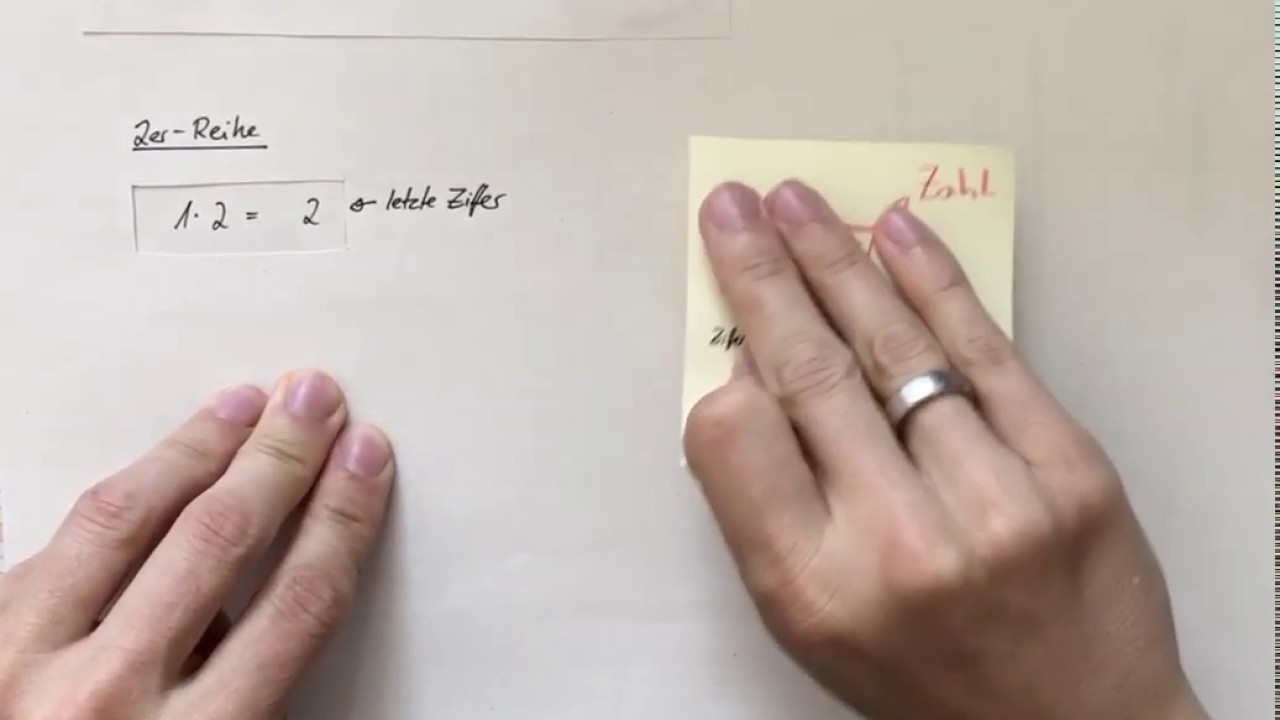 2er-Reihe
1 · 2 = 2 ← letzte Ziffer
Zahl